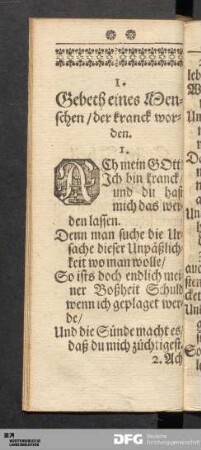 I.
Gebeth eines Men-
schen/der kranck wor-
den.
1.
ACh mein GOtt
Jch bin kranck/
und du hast
mich das wer-
den lassen.
Denn man suche die Ur-
sache dieser Unpäßlich-
keit wo man wolle/
So ists doch endlich mei-
ner Boßheit Schuld
wenn ich geplaget wer-
de/
Und die Sünde macht es/
daß du mich züchtigest.
2. Ach
DFG Deutsche
Forschungsgemeinschaft